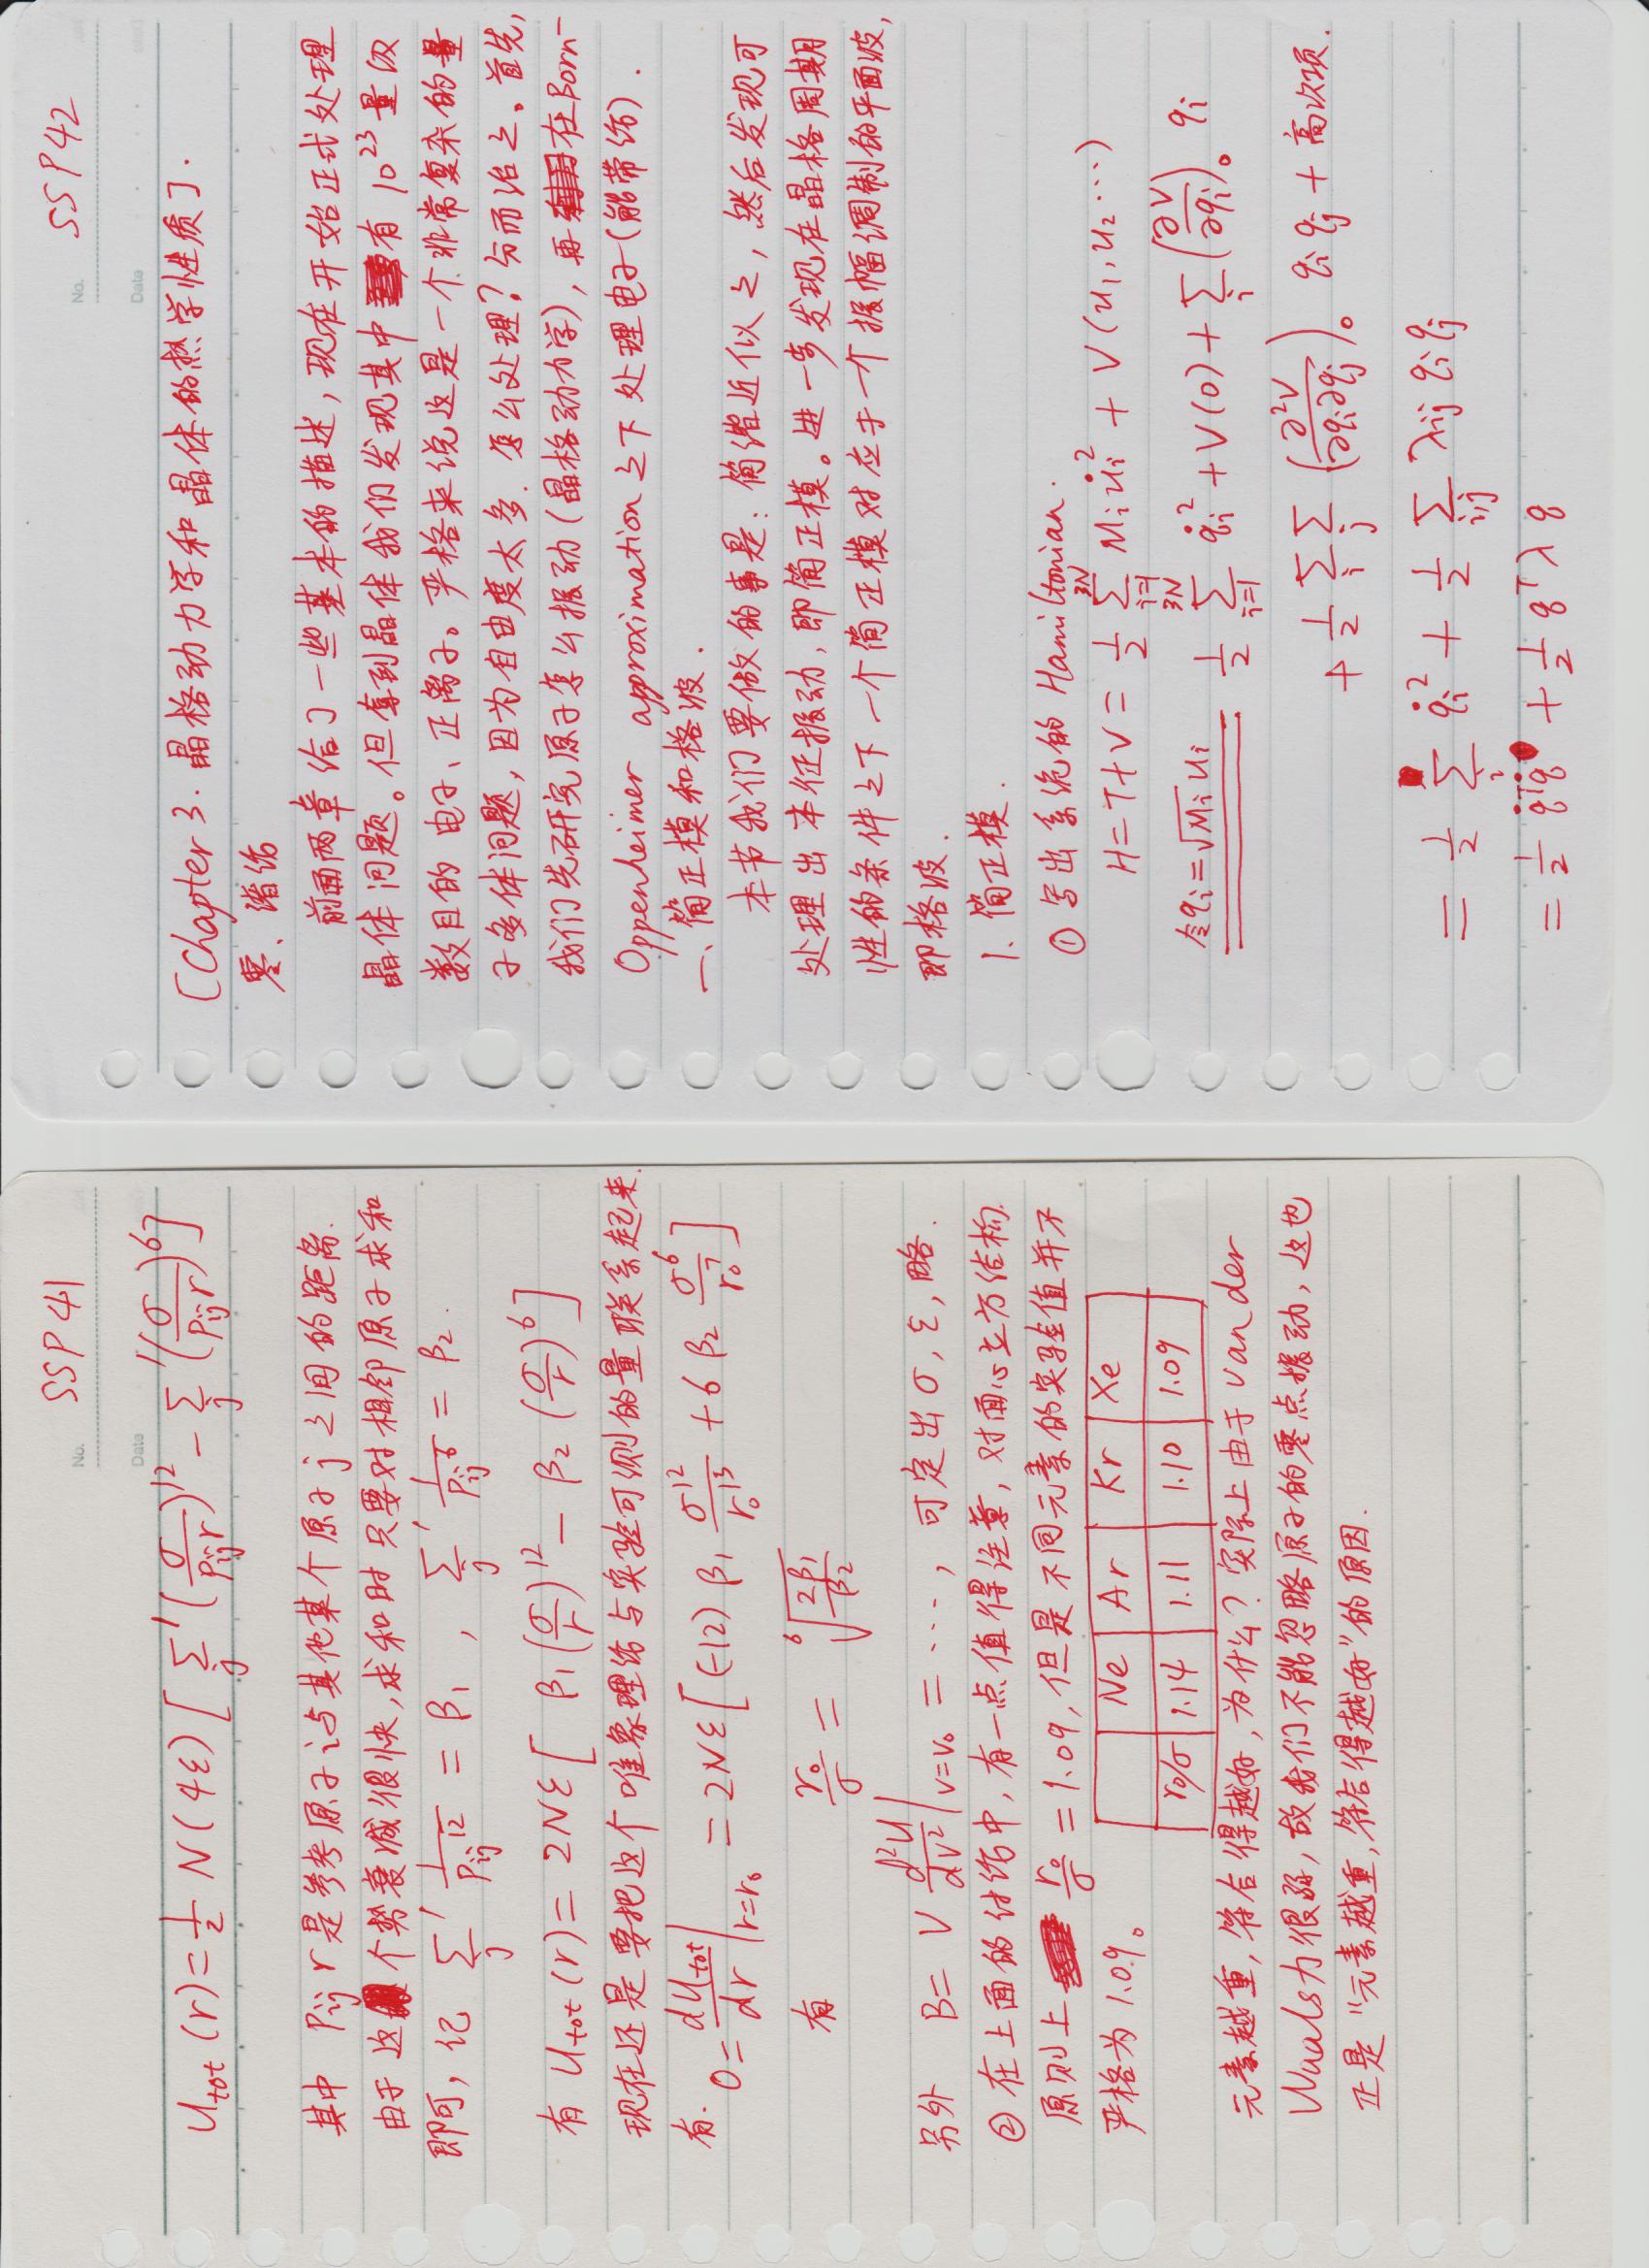 No. SSP 41
Date
U_tot (r) = 1/2 N (4ε) [ Σ'_j (σ/(P_ij r))^12 - Σ'_j (σ/(P_ij r))^6 ]
其中 P_ij r 是参考原子 i 与其他某个原子 j 之间的距离.
由于这个势衰减很快,求和时只要对相邻原子求和
即可, 记 Σ'_j 1/P_ij^12 = β₁ , Σ'_j 1/P_ij^6 = β₂.
有 U_tot (r) = 2Nε [ β₁ (σ/r)^12 - β₂ (σ/r)^6 ]
现在还是要把这个唯象理论与实验可测的量联系起来.
有. 0 = dU_tot/dr |_{r=r₀} = 2Nε [ (-12) β₁ σ^12/r₀^13 + 6 β₂ σ^6/r₀^7 ]
有 r₀/σ = ⁶√(2β₁/β₂)
另外 B = V d²U/dV² |_{V=V₀} = ⋯ , 可定出 σ, ε, 略.
② 在上面的讨论中, 有一点值得注意, 对面心立方结构.
原则上 r₀/σ = 1.09, 但是不同元素的实验值并不
严格为 1.09。
Ne Ar Kr Xe
r₀/σ 1.14 1.11 1.10 1.09
元素越重, 符合得越好, 为什么? 实际上由于 Van der
Waals力很弱, 故我们不能忽略原子的零点振动, 这也
正是“元素越重, 符合得越好”的原因.
No. SSP 42
Date
[Chapter 3. 晶格动力学和晶体的热学性质].
零、绪论
前面两章给了一些基本的描述, 现在开始正式处理
晶体问题。但拿到晶体我们发现其中有 10^23 量级
数目的电子、正离子。严格来说这是一个非常复杂的量
子多体问题, 因为自由度太多. 怎么处理? 分而治之。首先,
我们先研究原子怎么振动 (晶格动力学), 再在Born-
Oppenheimer approximation 之下处理电子 (能带论).
一、简正模和格波.
本节我们要做的事是: 简谐近似之, 然后发现可
处理出本征振动, 即简正模。进一步发现在晶格周期
性的条件之下一个简正模对应于一个振幅调制的平面波,
即格波.
1. 简正模.
① 写出系统的 Hamiltonian.
H = T + V = 1/2 Σ_{i=1}^{3N} M_i u̇_i² + V (u₁, u₂ ⋯)
令 q_i = √M_i u_i 1/2 Σ_{i=1}^{3N} q̇_i² + V(0) + Σ_i (∂V/∂q_i)₀ q_i
+ 1/2 Σ_i Σ_j (∂²V/∂q_i∂q_j)₀ q_i q_j + 高次项.
= 1/2 Σ_i q̇_i² + 1/2 Σ_{i,j} λ_ij q_i q_j
= 1/2 q̇^T q̇ + 1/2 q^T λ q